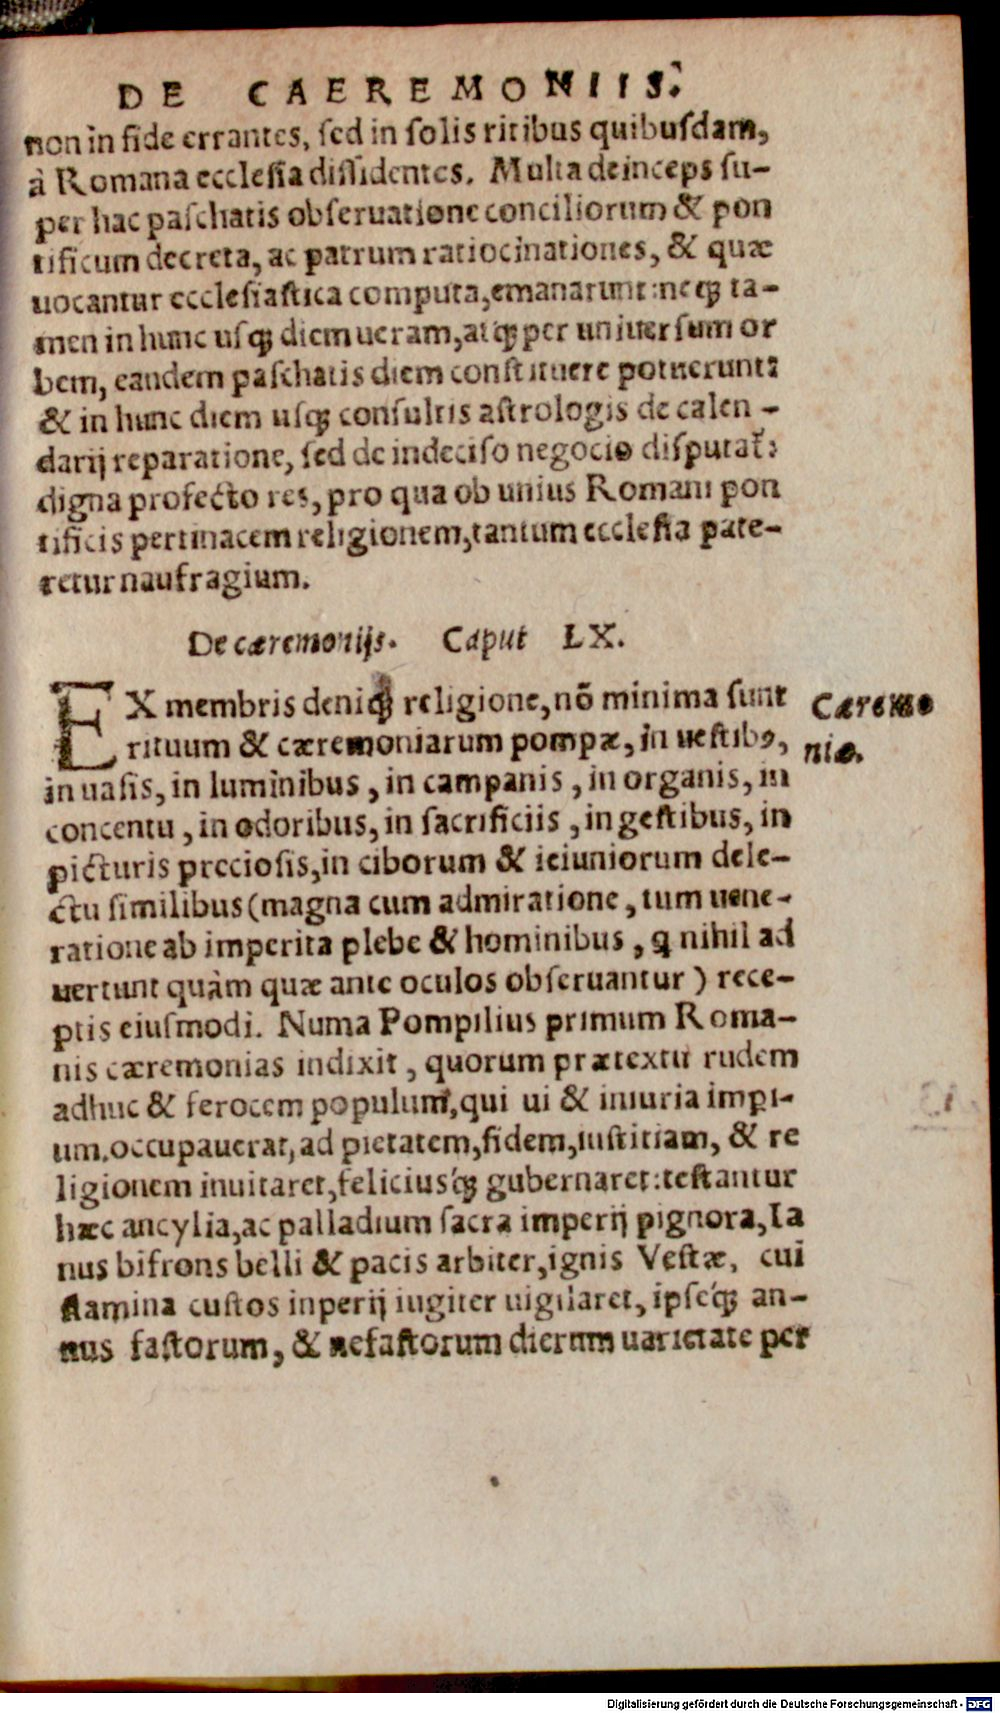 DE CAEREMONIIS.
non in fide errantes, ſed in ſolis ritibus quibuſdam,
à Romana eccleſia diſſidentes. Multa deinceps ſu-
per hac paſchatis obſeruatione conciliorum & pon
tificum decreta, ac patrum ratiocinationes, & quæ
uocantur eccleſiaſtica computa, emanarunt: neqꝫ ta-
men in hunc uſqꝫ diem ueram, atqꝫ per uniuerſum or
bem, eandem paſchatis diem conſtituere potuerunt:
& in hunc diem uſqꝫ conſultis aſtrologis de calen-
darij reparatione, ſed de indeciſo negocio diſputat̃:
digna profecto res, pro qua ob unius Romani pon
tificis pertinacem religionem, tantum eccleſia pate-
retur naufragium.
De cæremonijs. Caput LX.
EX membris deniqꝫ religione, nõ minima ſunt
Cæremo
rituum & cæremoniarum pompæ, in ueſtibꝰ,
niæ.
in uaſis, in luminibus, in campanis, in organis, in
concentu, in odoribus, in ſacrificiis, in geſtibus, in
picturis precioſis, in ciborum & ieiuniorum dele-
ctu ſimilibus (magna cum admiratione, tum uene-
ratione ab imperita plebe & hominibus, q nihil ad
uertunt quàm quæ ante oculos obſeruantur) rece-
ptis eiuſmodi. Numa Pompilius primum Roma-
nis cæremonias indixit, quorum prætextu rudem
adhuc & ferocem populum, qui ui & iniuria impi-
um. occupauerat, ad pietatem, fidem, iuſtitiam, & re
ligionem inuitaret, feliciusq́ꝫ gubernaret: teſtantur
hæc ancylia, ac palladium ſacra imperij pignora, Ia
nus bifrons belli & pacis arbiter, ignis Veſtæ, cui
flamina cuſtos inperij iugiter uigilaret, ipſeq́ꝫ an-
nus faſtorum, & nefaſtorum dierum uarietate per
Digitalisierung gefördert durch die Deutsche Forschungsgemeinschaft - DFG